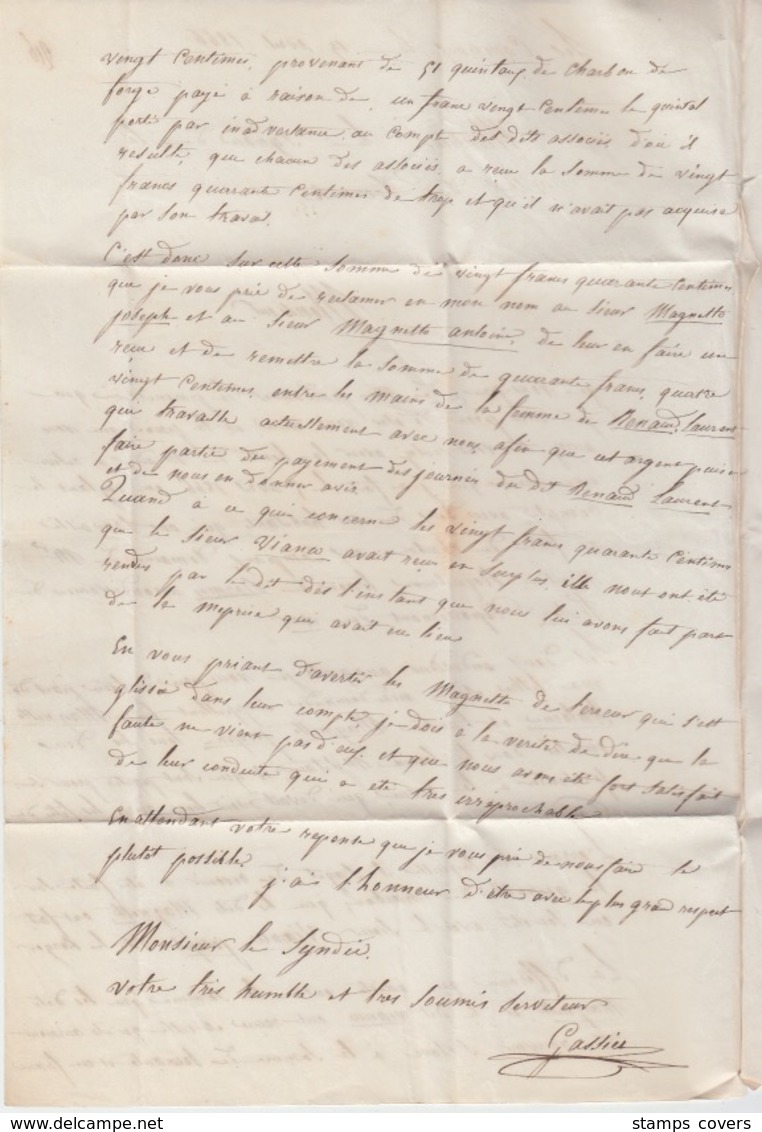 vingt Centimes, provenant de 51 quintaux de Charbon de
forge payé à raison de un franc vingt Centimes le quintal
porté par inadvertance au Compt des dits associés d'où il
resulte, que chacun des associés a reçu la somme de vingt
francs quarante Centimes de trop et qu'il n'avait pas acquise
par son travail.
C'est donc sur cette somme de vingt francs quarante Centimes
que je vous prie de reclamer en mon nom au sieur Magnetto
joseph et au sieur Magnetto antoine, de leur en faire un
reçu et de remettre la somme de quarante francs, quatre
vingt Centimes, entre les mains de la femme de Renaud, Laurent
qui travaille actuellement avec nous, afin que cet argent puisse
faire partie du payement des journées du dt Renaud Laurent
et de nous en donner avis.
Quand à ce qui concerne les vingt francs quarante Centimes
que le sieur Vianco avait reçu en surplus, ills nout ont été
rendus par le dit dès l'instant que nous lui avons fait part
de la meprise qui avait eu lieu
En vous priant d'avertir les Magnetto de l'erreur qui s'est
glissée dans leur compte, je dois à la verité de dire que la
faute ne vient pas d'eux, et que nous avons été fort satisfait
de leur conduite qui a eté tres irréprochable
En attendant votre reponse que je vous prie de nous faire le
plutot possible.
j'ai l'honneur d'etre avec le plus grand respect
Monsieur le Syndic.
votre très humble et tres soumis serviteur
Gassier
stamps covers